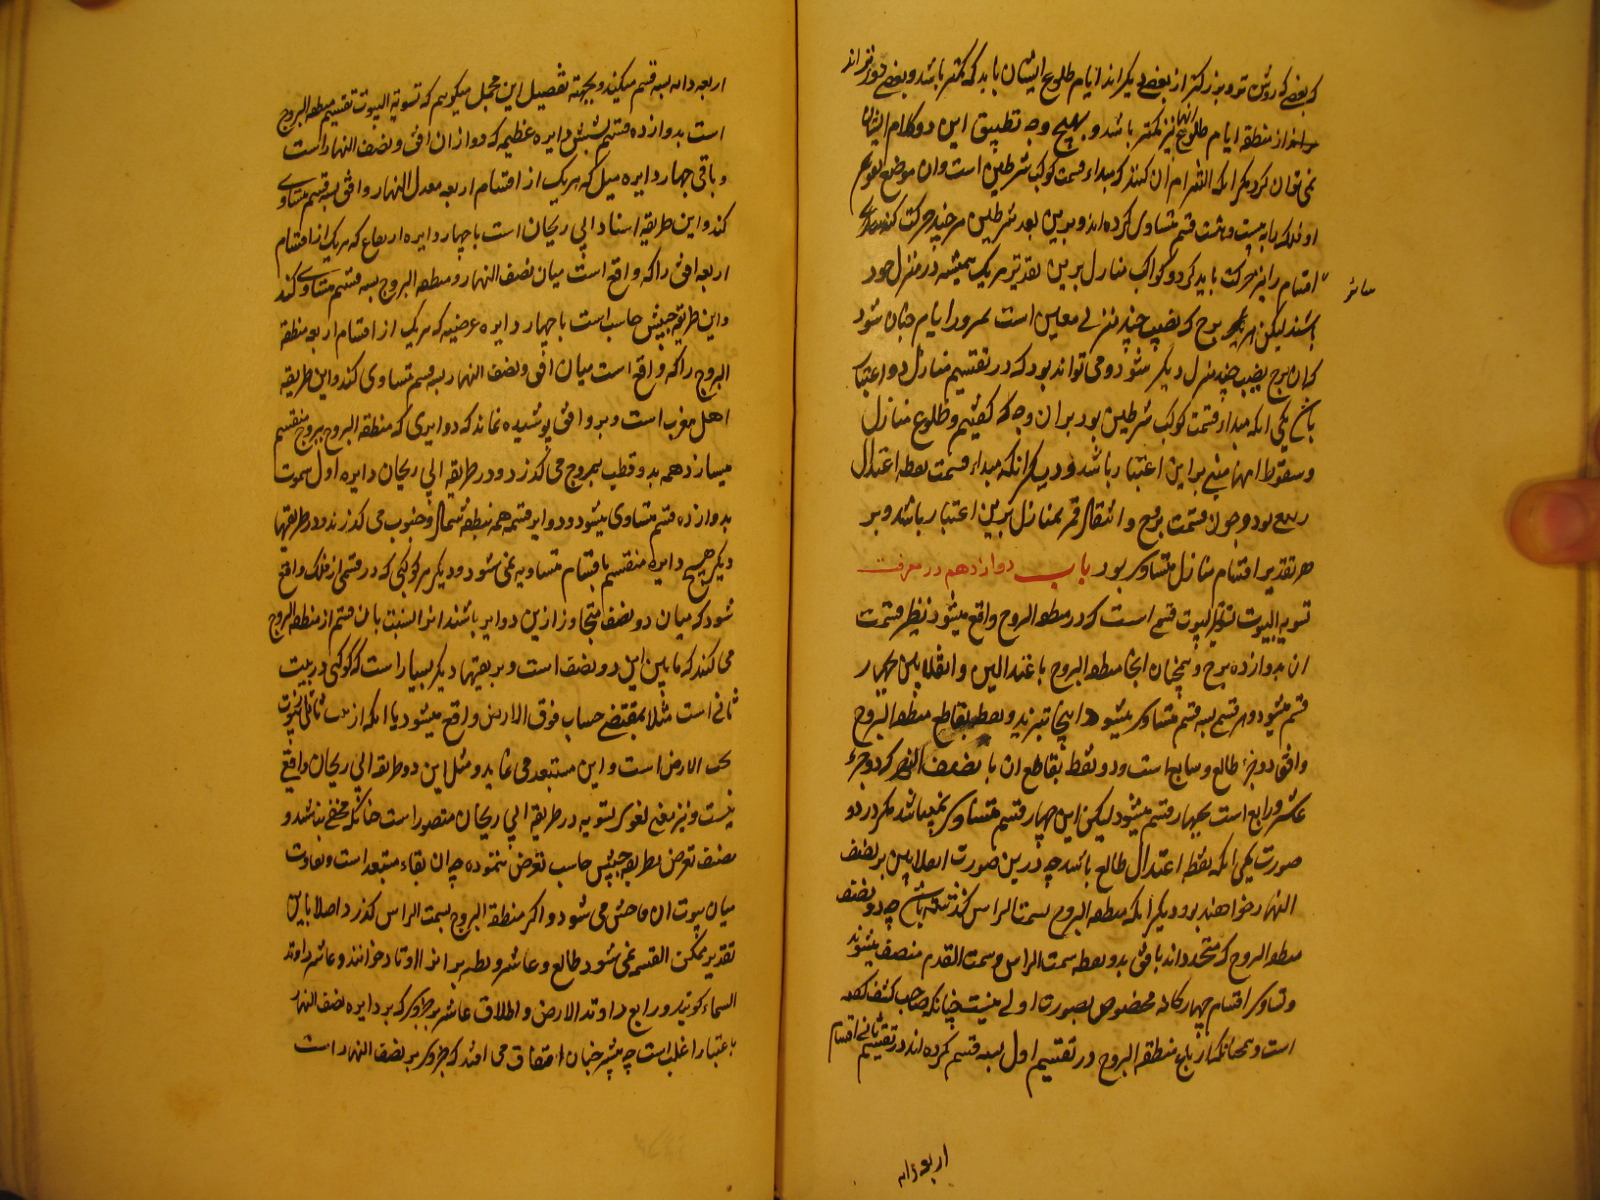 که بعضی که روشن تر و بزرکتر از بعضی دیکراند ایام طلوع ایشان باید که کمتر باشد و بعضی دورتراند
از منطقه ایام طلوع انها نیز کمتر باشد و بهیچ وجه تطبیق این دو کلام ایشان
نمی توان کرد مکر انکه التزام ان کنند که مبداء قسمت کوکب شرطین است و ان موضع
او فلک را به بیست و هشت قسم متساوی کرده اند و برین بعد شرطین هرچند حرکت کند
اقسام را نیز حرکت باید کرد و کواکب منازل برین تقدیر هریک همیشه در منزل خود
سائر
باشند لیکن هر برج که نصیب چند منزلی معین است بمرور ایام چنان شود
که ان برج نصیب چند منزل دیکر شود و می تواند بود که در تقسیم منازل دو اعتبار
باشد یکی انکه مبداء قسمت کوکب شرطین بود بران وجه که کفتیم و طلوع منازل
و سقوط انها مبنی براین اعتبار باشد و دیکر انکه مبداء قسمت نقطه اعتدال
ربیعی بود چون قسمت بروج و انتقال قمر بمنازل برین اعتبار باشد و بر
هر تقدیر اقسام منازل متساوی بود باب دوازدهم در معرفت
تسویه البیوت تسویه البیوت قسمی است که در منطقه البروج واقع میشود نظیر قسمت
ان بدوازده برج و همچنان انجا منطقه البروج باعتدالین و انقلابین چهار
قسم میشود و هر قسمی بسه قسم متساوی میشود اینجا نیز بدو نقطه تقاطع منطقه البروج
و افق دو جزء طالع و سابع است و دو نقطه تقاطع ان با نصف النهار که دو جزء
عاشر و رابع است بچهار قسم میشود لیکن این چهار قسم متساوی نمیباشد مکر در دو
صورت یکی انکه نقطه اعتدال طالع باشد چه درین صورت انقلابین بر نصف
النهار خواهند بود دیکر انکه منطقه البروج بسمت الراس کذشته باشد چه دو نصف
منطقه البروج که متحدداند بافق بدو نقطه سمت الراس و سمت القدم منصف میشوند
و تساوی اقسام چهارکانه مخصوص بصورت اولی نیست چنانکه صاحب کشف کفته
است و همچنانکه ارباع منطقه البروج در تقسیم اول بسه قسم کرده اند در تقسیم ثانی اقسام
اربعه را
اربعه را به سه قسم میکنند و بجهته تفصیل این مجمل میکویم که تسویه البیوت تقسیم منطقه البروج
است بدوازده قسم بشش دایره عظیمه که دو ازان افق و نصف النهار است
و باقی چهار دایره میل که هریک از اقسام اربعه معدل النهار و افق بسه قسم متساوی
کند و این طریقه استاد ابی ریحان است با چهار دایره ارتفاع که هریک از اقسام
اربعه افق را که واقع است میان نصف النهار و منطقه البروج بسه قسم متساوی کند
و این طریقه حبش حاسب است با چهار دایره عرضیه که هریک از اقسام اربعه منطقه
البروج را که واقع است میان افق و نصف النهار بسه قسم متساوی کند و این طریقه
اهل مغرب است و بر واقف پوشیده نماند که دوایری که منطقه البروج ببروج منقسم
میسازد همه بدو قطب بروج می کذرد و در طریقه ابی ریحان دایره اول سموت
بدوازده قسم متساوی میشود و دوایر قسمه همه بنقطه شمال و جنوب می کذرند و در طریقهای
دیکر هیچ دایره منقسم باقسام متساویه نمی شود و دیکر هر کوکبی که در قسمی از فلک واقع
شود که میان دو نصف متجاوز ازین دوایر باشند انرا نسبت بان قسم از منطقه البروج
می کنند که مابین این دو نصف است و بر طریقهای دیکر بسیار است که کوکبی در بیت
ثانی است مثلا بمقتضی حساب فوق الارض واقع میشود یا انکه از بیت
تحت الارض است و این مستبعد می نماید و مثل این در طریقه ابی ریحان واقع
نیست و نیز معنی لغوی تسویه در طریقه ابی ریحان متصور است چنانکه مخفی نباشد و
مصنف تعرض بطریقه حبش حاسب تعرض ننموده چه ان بغایه مستبعد است و تفاوت
میان بیوت ان فاحش می شود و اکر منطقه البروج بسمت الراس کذرد اصلا باین
تقدیر ممکن القسمه نمی شود طالع و عاشر و نظیر انرا اوتاد خوانند و عاشر را وتد
السماء کویند و رابع را وتد الارض و اطلاق عاشر بر جزوی که بر دایره نصف النهار
باعتبار اغلب است چه بیشتر چنان اتفاق می افتد که جزوی که بر نصف النهار است